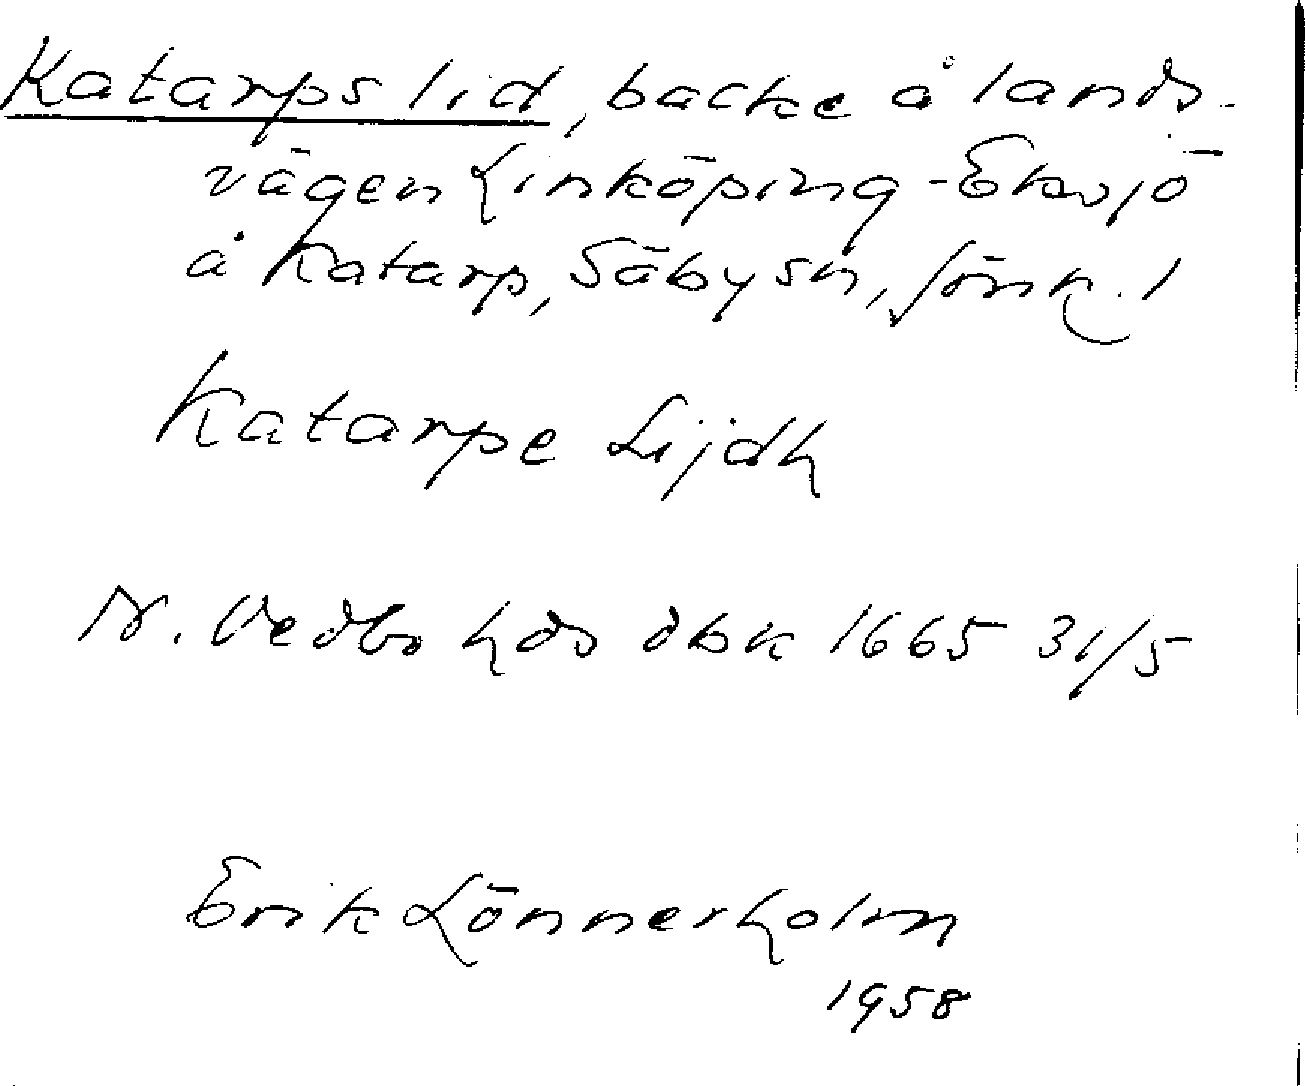 Katarps lid, backe å lands-
vägen Linköping-Eksjö
å Katarp, Säby sn, Jönk. l
Katarpe Lijdh
N. Vedbo hds dbk 1665 31/5
Erik Lönnerholm
1958